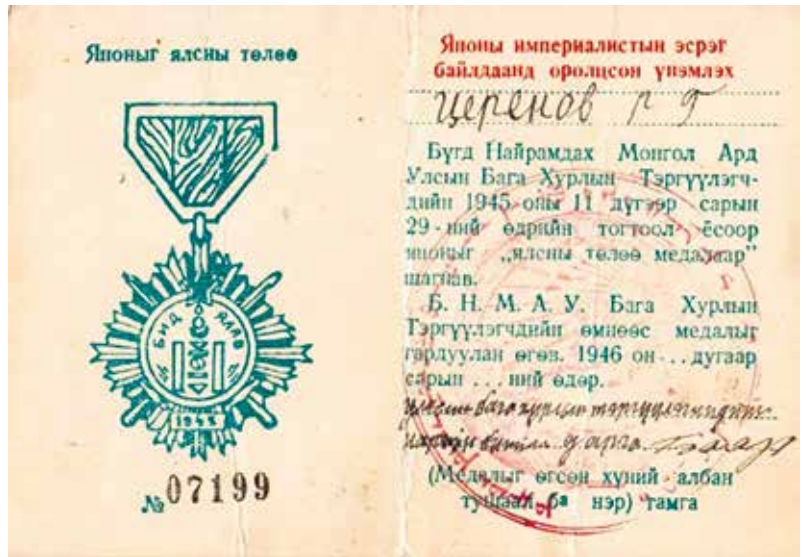 Японыг ялсны төлөө
БИД ЯЛАВ
1945
№ 07199
Японы империалистын эсрэг
байлдаанд оролцсон үнэмлэх
Церенов Р Г
Бүгд Найрамдах Монгол Ард
Улсын Бага Хурлын Тэргүүлэгч-
дийн 1945 оны 11 дүгээр сарын
29-ний өдрийн тогтоол ёсоор
японыг „ялсны төлөө медалаар"
шагнав.
Б. Н. М. А. У. Бага Хурлын
Тэргүүлэгчдийн өмнөөс медалыг
гардуулан өгөв. 1946 он ... дугаар
сарын ... ний өдөр.
дарга
(Медалыг өгсөн хүний албан
тушаал ба нэр) тамга